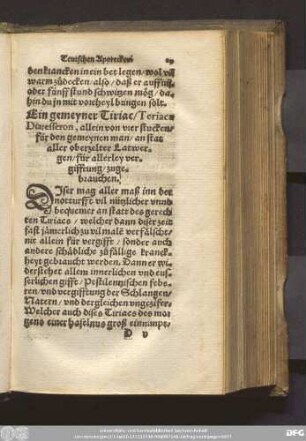 Teutschen Apotecken
den krancken in ein bet legen / wol vñ
warm zůdecken / also / daß er auff ein
oder fünff stund schwitzen mög / da-
hin du jn mit vortheyl bringen solt.
Ein gemeyner Tiriac / Teriaca
Diatesseron, allein von vier stucken /
für den gemeynen man / an stat
aller oberzelter Latwer-
gen / für allerley ver-
gifftung / zuge-
brauchen.
DIser mag aller maß inn der
notturfft vil nützlicher vnnd
bequemer an statt des gerech
ten Tiriacs / welcher dann diser zeit
fast jämerlich zu vilmalē verfälscht /
nit allein für vergifft / sonder auch
andere schädliche zůfällige kranck-
heyt gebraucht werden. Dann er wi-
derstehet allem innerlichen vnd eus-
serlichen gifft / Pestilentzischen febe-
ren / vnd vergifftung der Schlangen /
Natern / vnd dergleichen vngezifer.
Welcher auch dises Tiriacs des mor
gens einer haselnus groß einnimpt /
D v